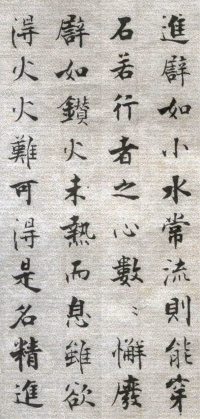 進譬如小水常流則能穿
石若行者之心數〻懈廢
譬如鑽火未熱而息雖欲
得火火難可得是名精進